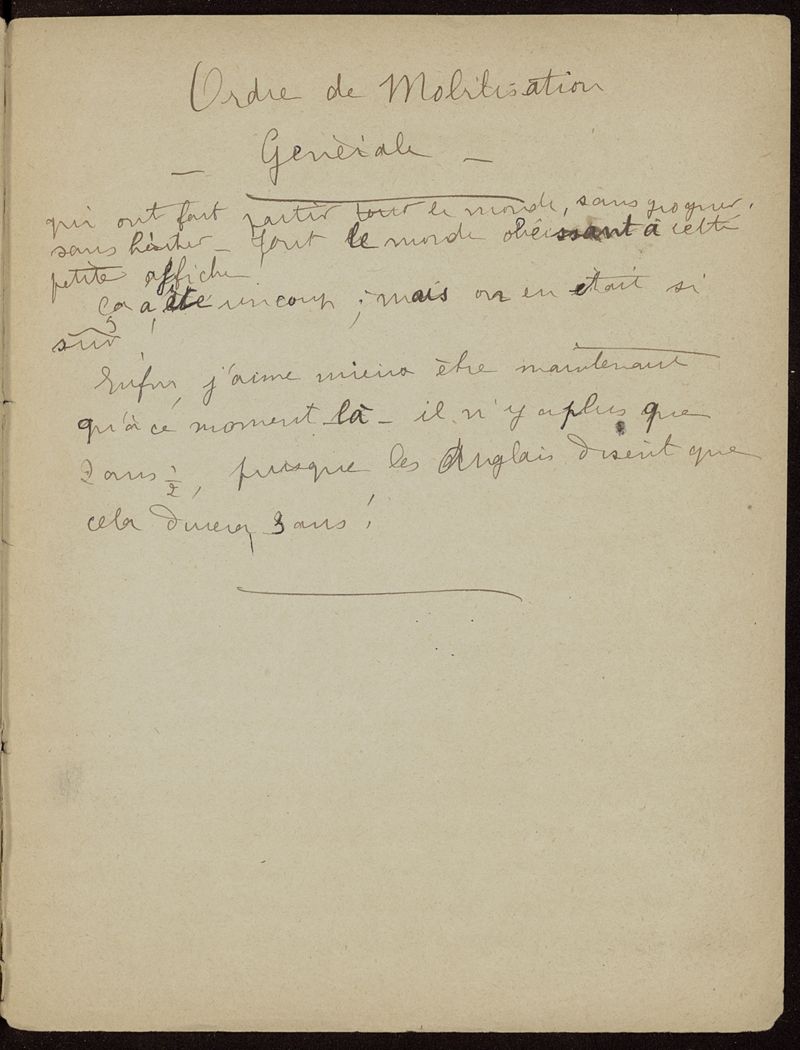 Ordre de Mobilisation
— Générale —
qui ont fait partir tout le monde, sans grogner,
sans hésiter – tout le monde obéissant à cette
petite affiche
Ça a été un coup ; mais on en était si
sûr !
Enfin, j'aime mieux être maintenant
qu'à ce moment là – il n'y a plus que
2 ans 1/2, puisque les Anglais disent que
cela durera 3 ans !